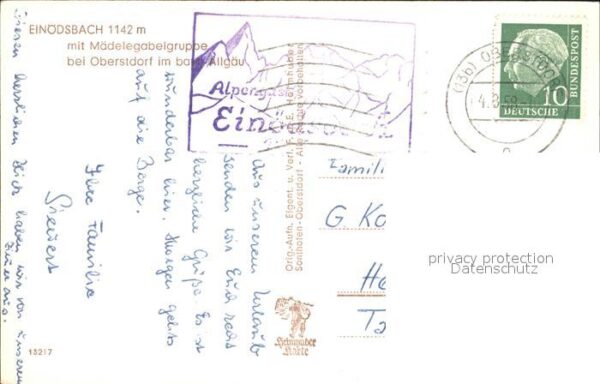 EINÖDSBACH 1142 m
mit Mädelegabelgruppe
bei Oberstdorf im bayr. Allgäu
Alpengast
Einödsbach
(13b) OBERSTDORF
4.8.58
DEUTSCHE
BUNDESPOST
10
Aus unserem Urlaub
senden wir Euch recht
herzliche Grüße. Es ist
wunderbar hier. Morgen gehts
auf die Berge.
Ihre Familie
Siewert
Diesen herrlichen Blick haben wir von unserem
Zimmer aus.
Orig.-Aufn. Eigent. u. Verl. F. u. E. Heimhuber
Sonthofen-Oberstdorf - Alle Rechte vorbehalten
Famili
G. Ko
He
Ta
privacy protection
Datenschutz
Heimhuber
Karte
13217